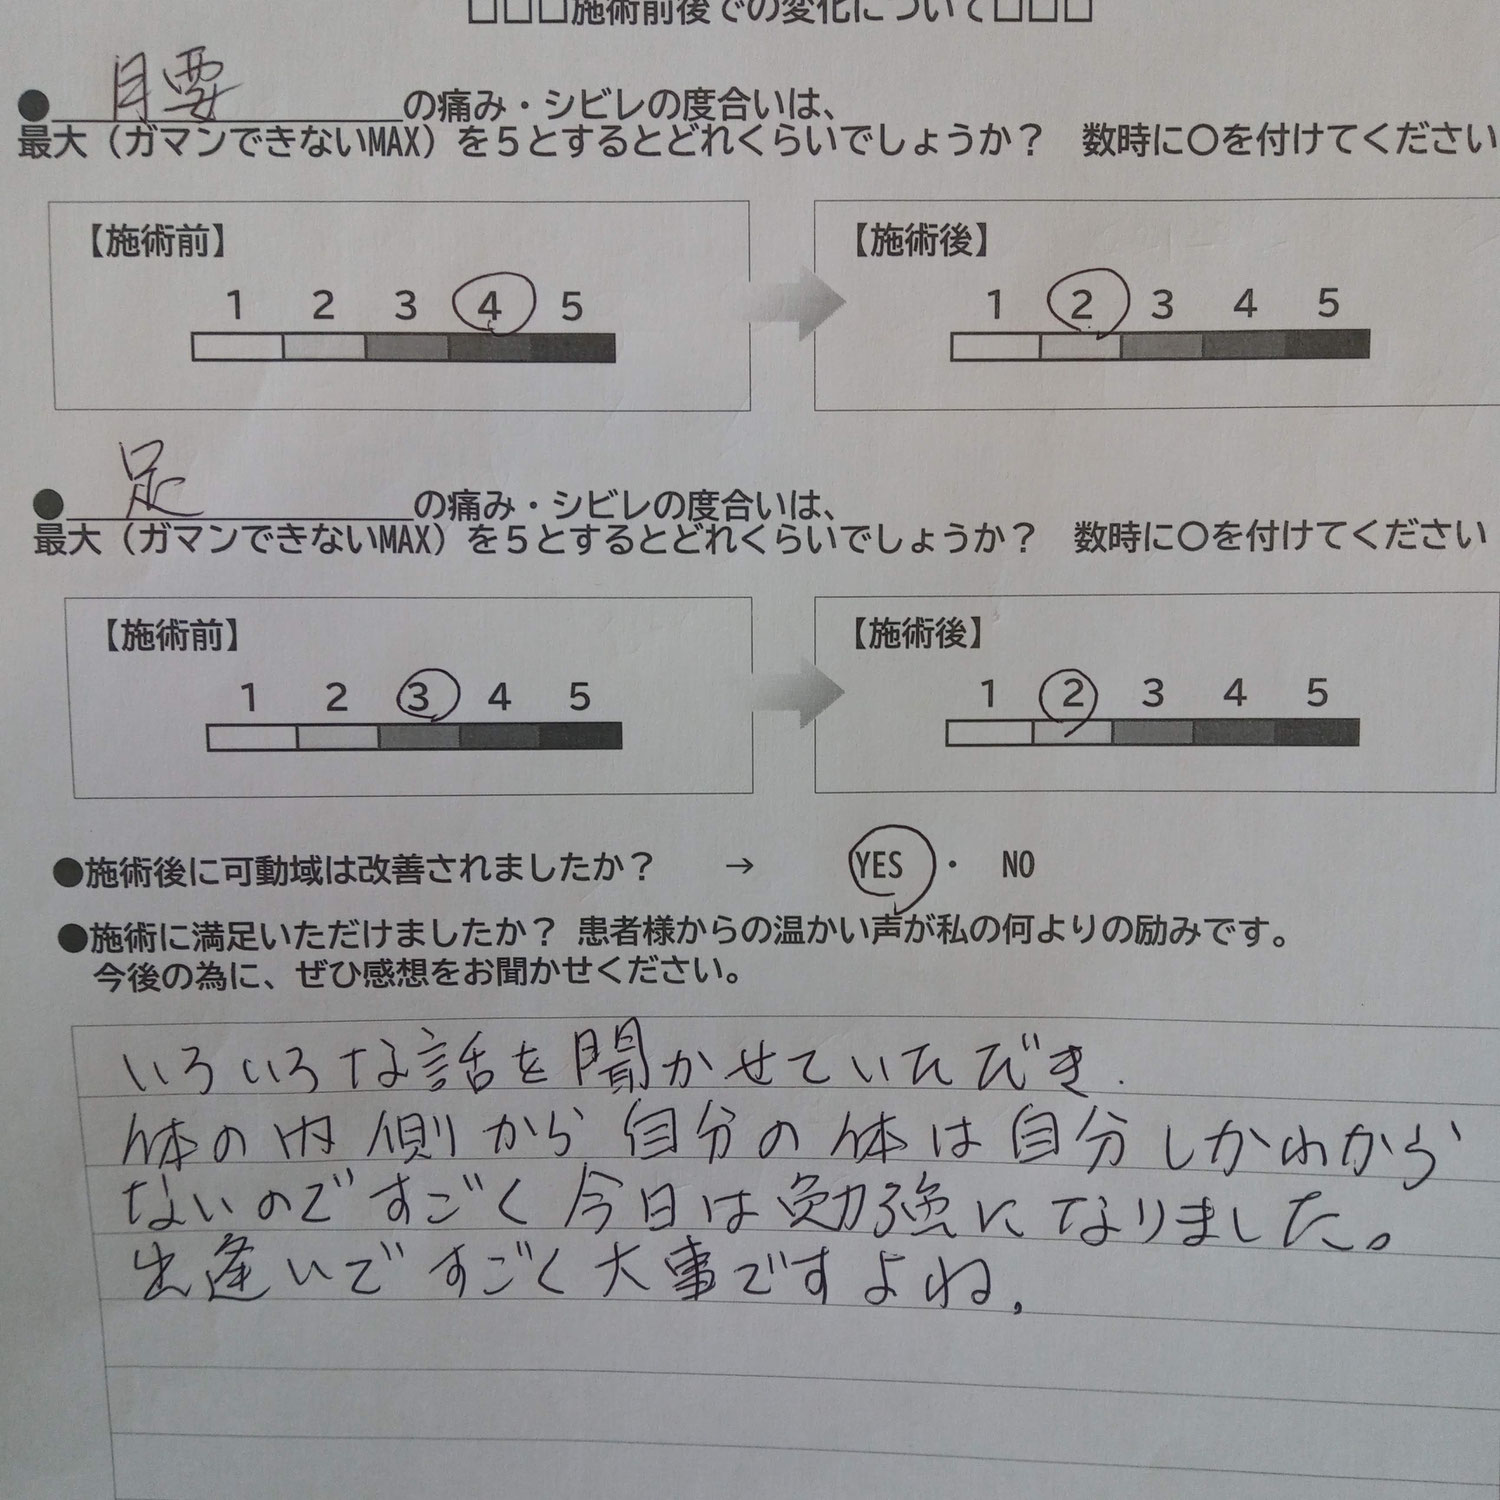 □□□施術前後での変化について□□□
●腰の痛み・シビレの度合いは、
最大（ガマンできないMAX）を５とするとどれくらいでしょうか？　数時に〇を付けてください
【施術前】 【施術後】
1 2 3 4 5 1 2 3 4 5
●足の痛み・シビレの度合いは、
最大（ガマンできないMAX）を５とするとどれくらいでしょうか？　数時に〇を付けてください
【施術前】 【施術後】
1 2 3 4 5 1 2 3 4 5
●施術後に可動域は改善されましたか？　→　YES ・ NO
●施術に満足いただけましたか？ 患者様からの温かい声が私の何よりの励みです。
今後の為に、ぜひ感想をお聞かせください。
いろいろな話を聞かせていただき.
体の内側から自分の体は自分しかわから
ないのですごく今日は勉強になりました。
出逢いですごく大事ですよね,